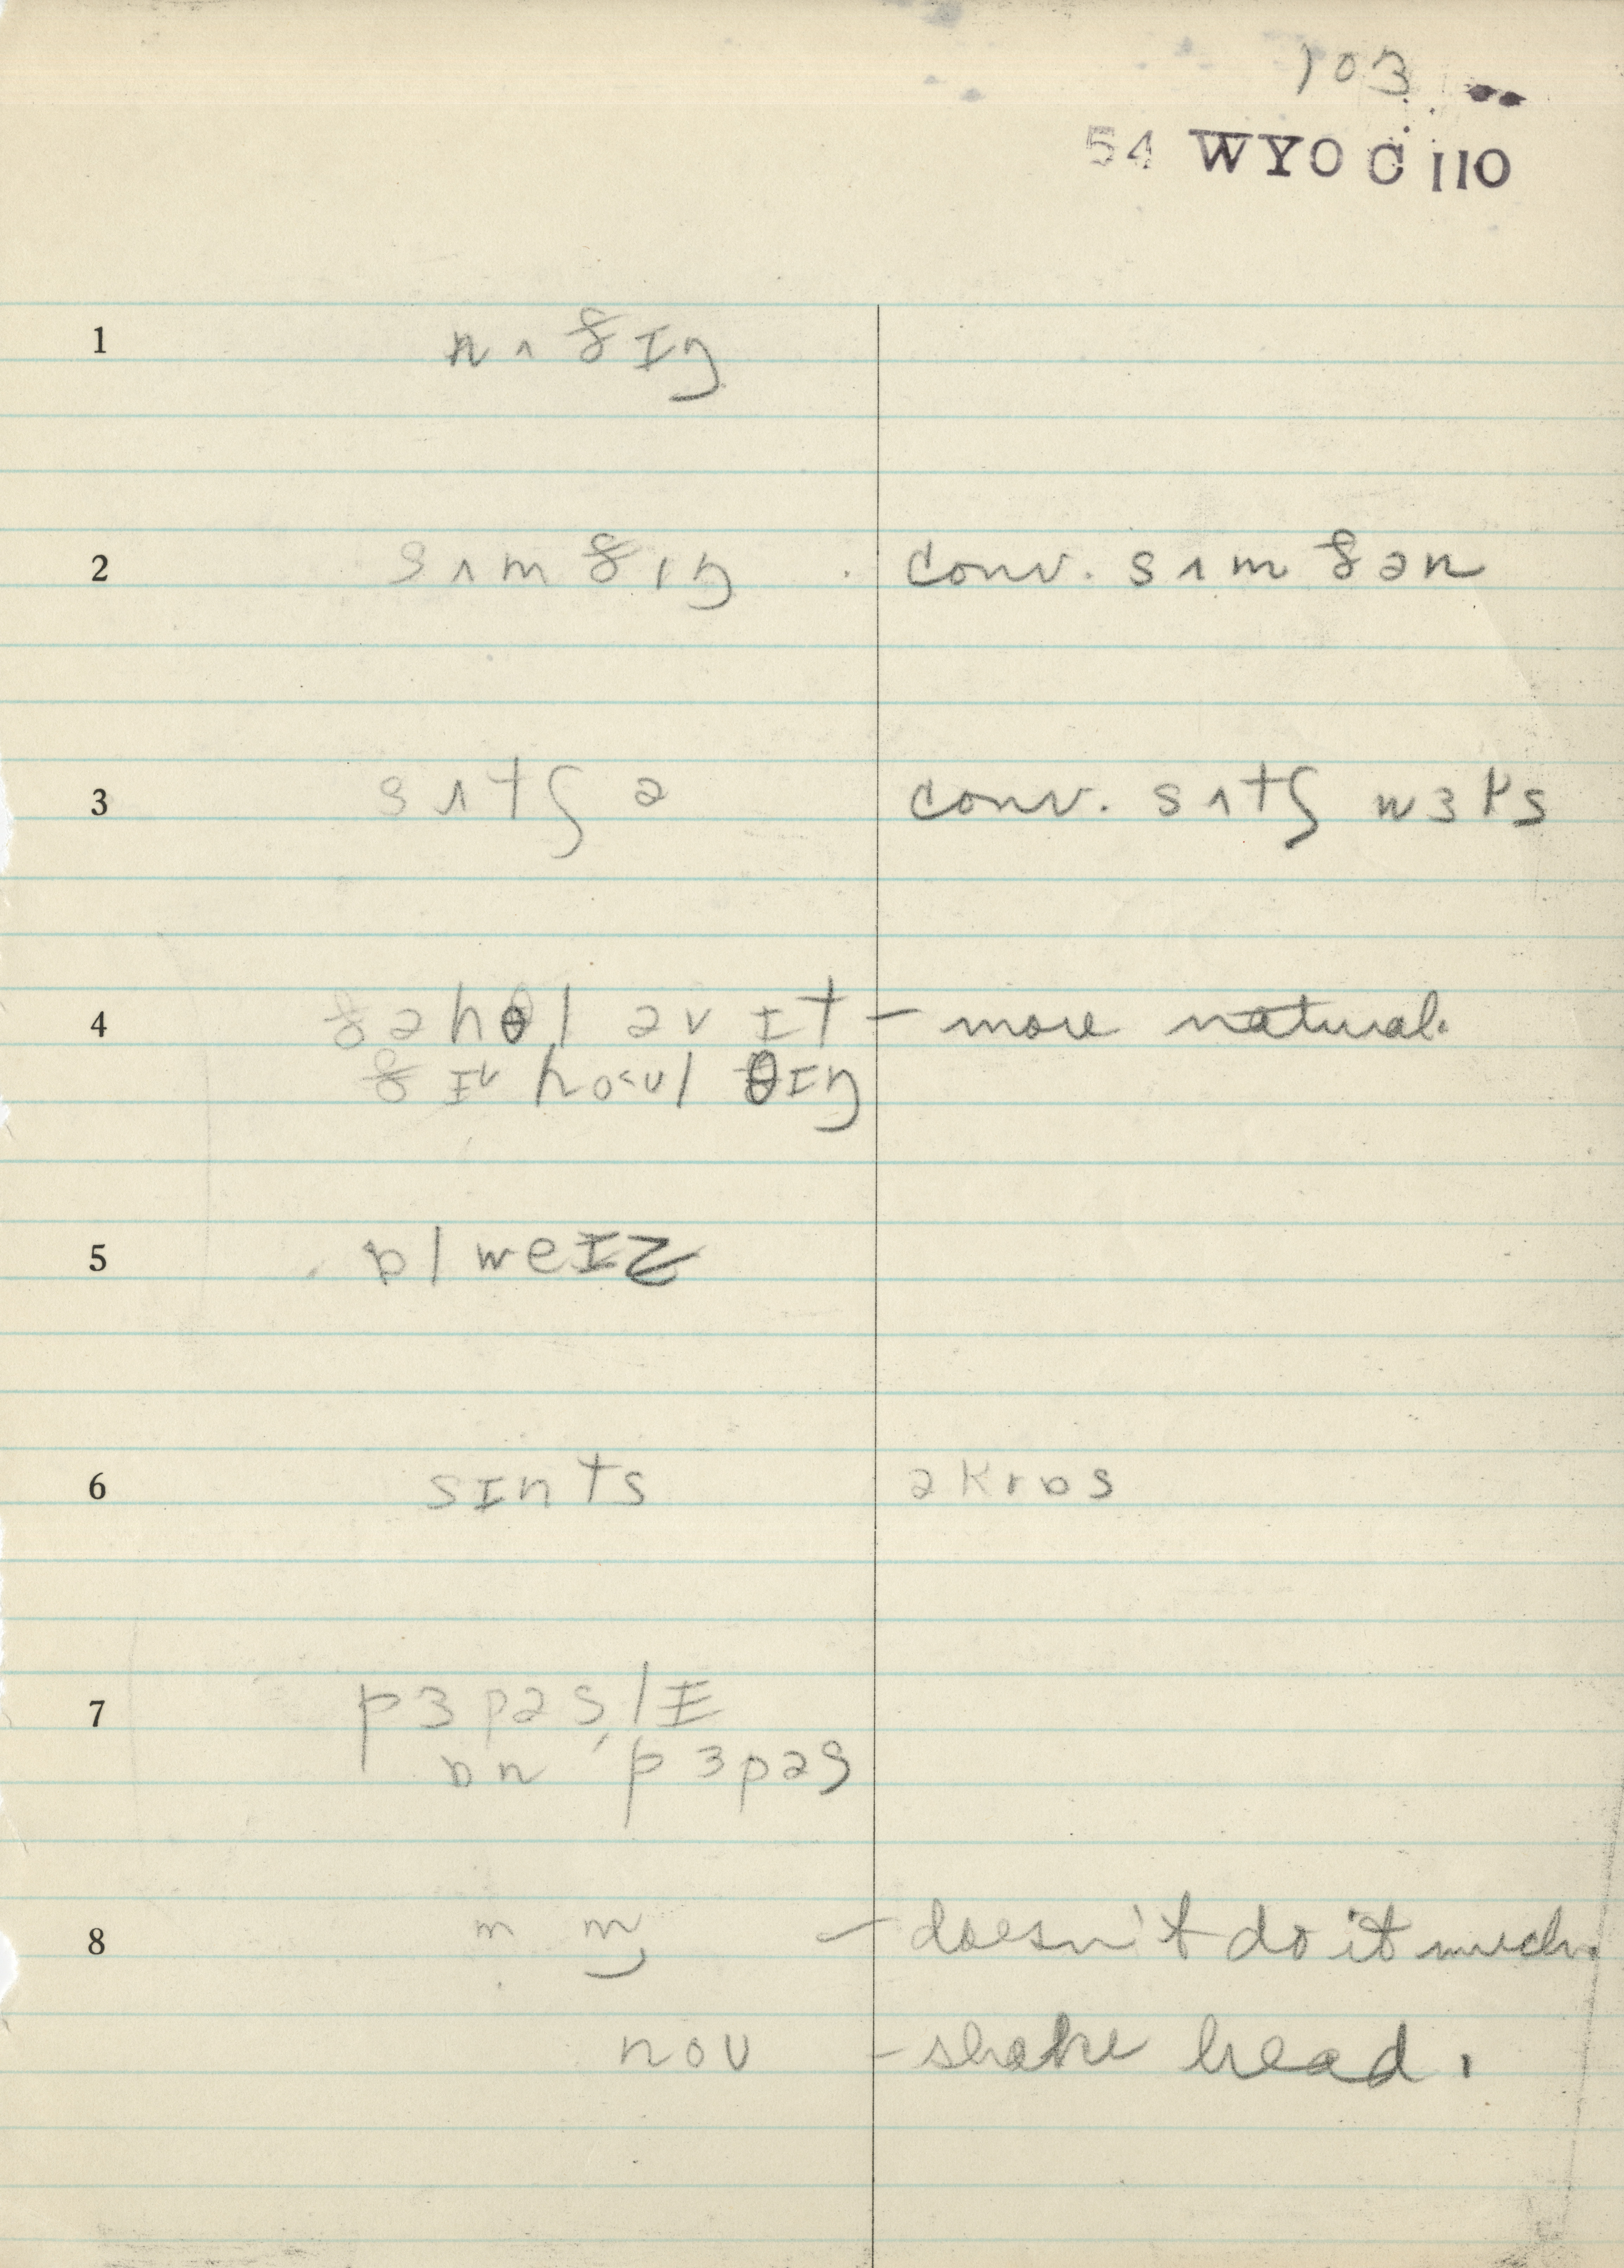 103
54 WYO C 110
1 nʌðɪŋ
2 sʌmðɪŋ . conv. sʌmðən
3 sʌtʃ ə conv. sʌtʃ wɜks
4 ðə hol əv ɪt – more natural.
ðɪ hoʊl θɪŋ
5 ɒlweɪz
6 sɪnts əkrɒs
7 pɜpəslɪ
ɒn ˈpɜpəs
8 m m̩ – doesn't do it much.
noʊ – shake head.